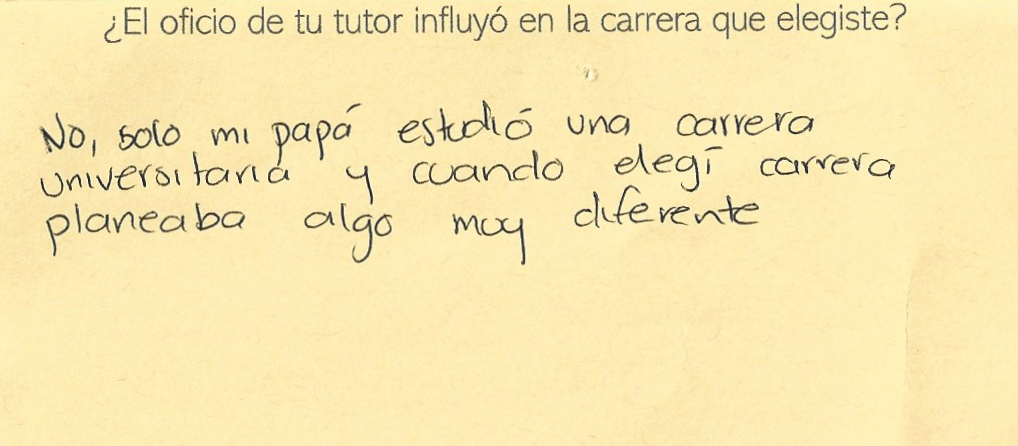 ¿El oficio de tu tutor influyó en la carrera que elegiste?
No, solo mi papá estudió una carrera
universitaria y cuando elegí carrera
planeaba algo muy diferente